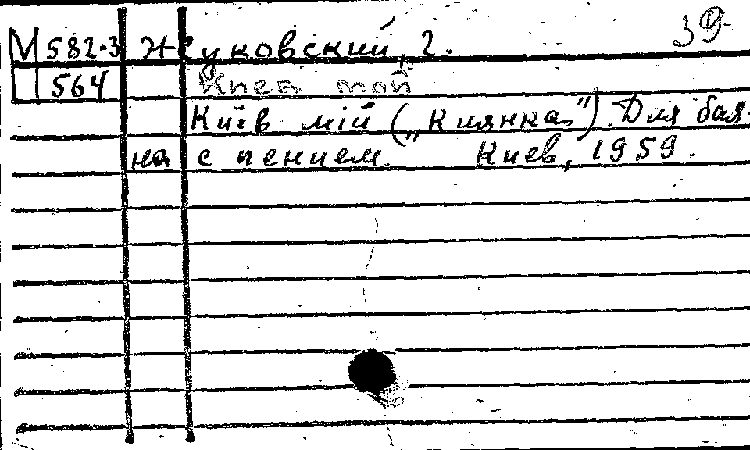 М 582-3 Жуковский, Г. 39
564 Киев мой
Київ мій („Киянка"). Для бая-
на с пением. Киев, 1959.